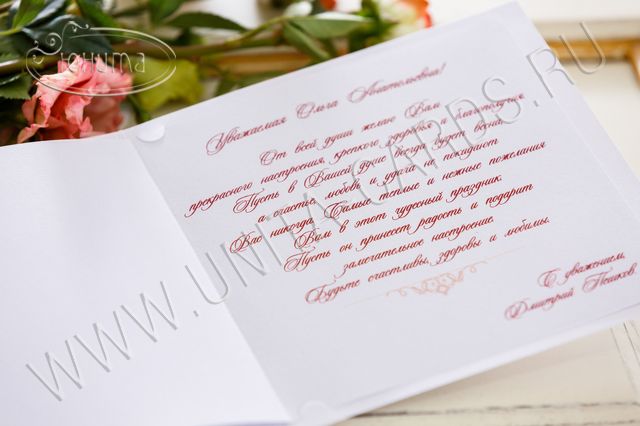 Юнита
Уважаемая Ольга Анатольевна!
От всей души желаю Вам
прекрасного настроения, крепкого здоровья и благополучия.
Пусть в Вашей душе всегда будет весна,
а счастье, любовь и удача не покидают
Вас никогда. Самые теплые и нежные пожелания
Вам в этот чудесный праздник.
Пусть он принесет радость и подарит
замечательное настроение.
Будьте счастливы, здоровы и любимы.
С уважением,
Дмитрий Пешков
WWW.UNITACARDS.RU